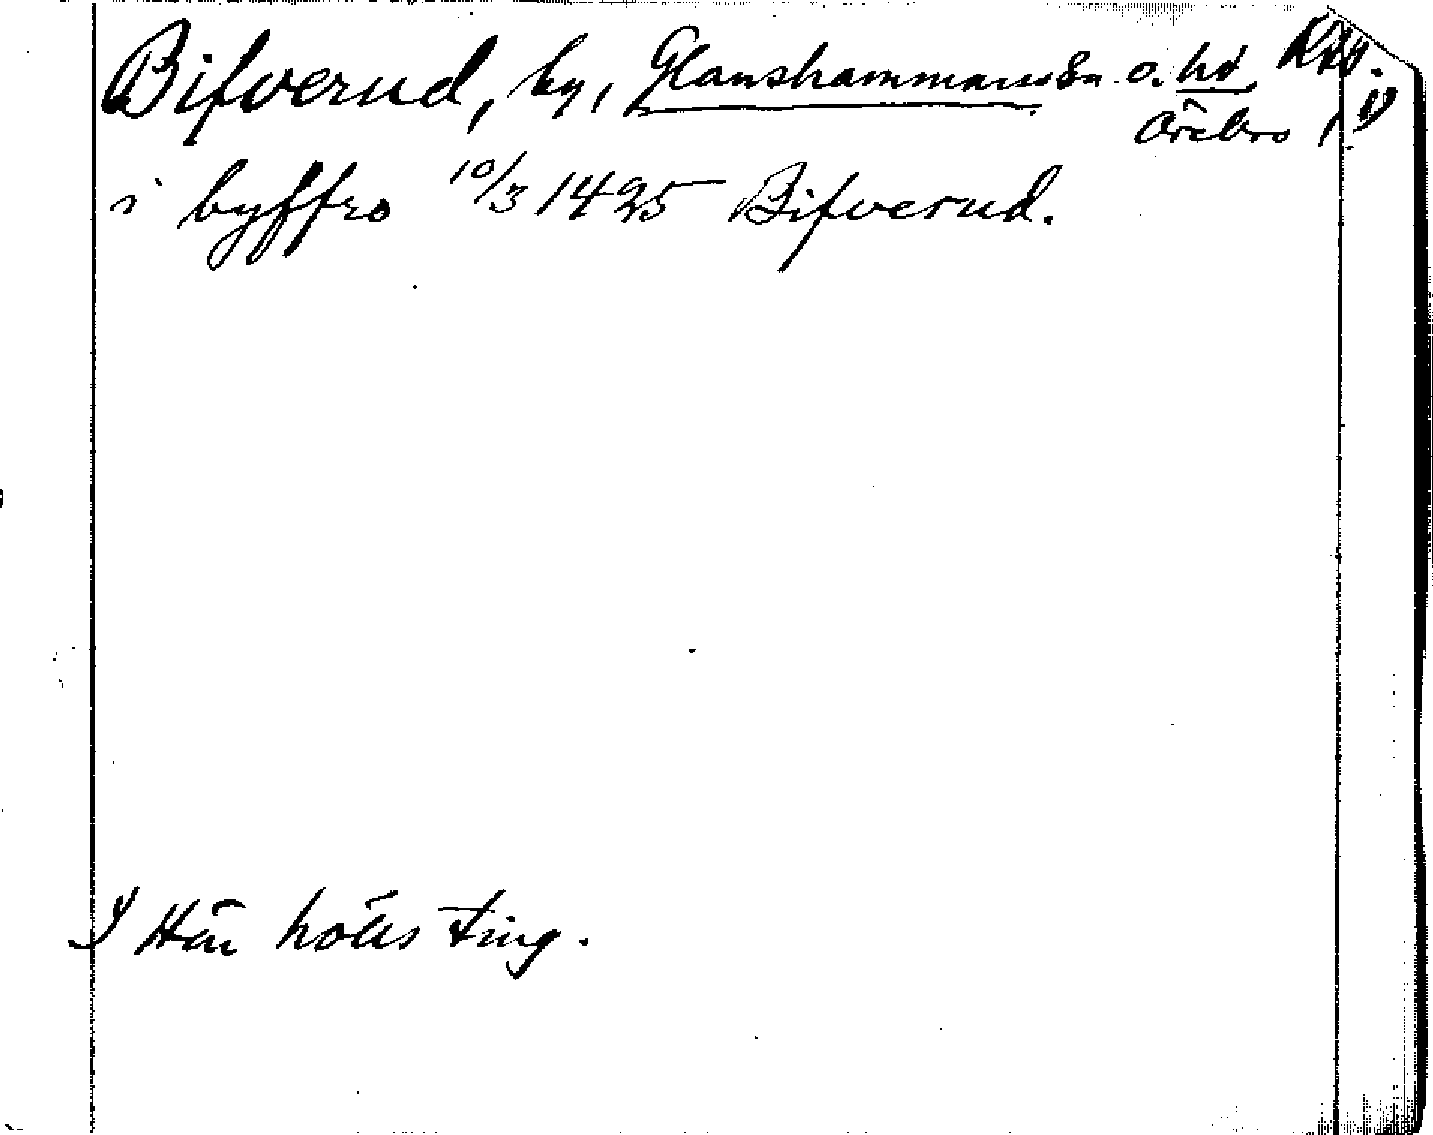 Bifverud, by, Glanshammars sn o. hd,
Örebro
i byffro 10/3 1425 Bifverud.
Här hölls ting.